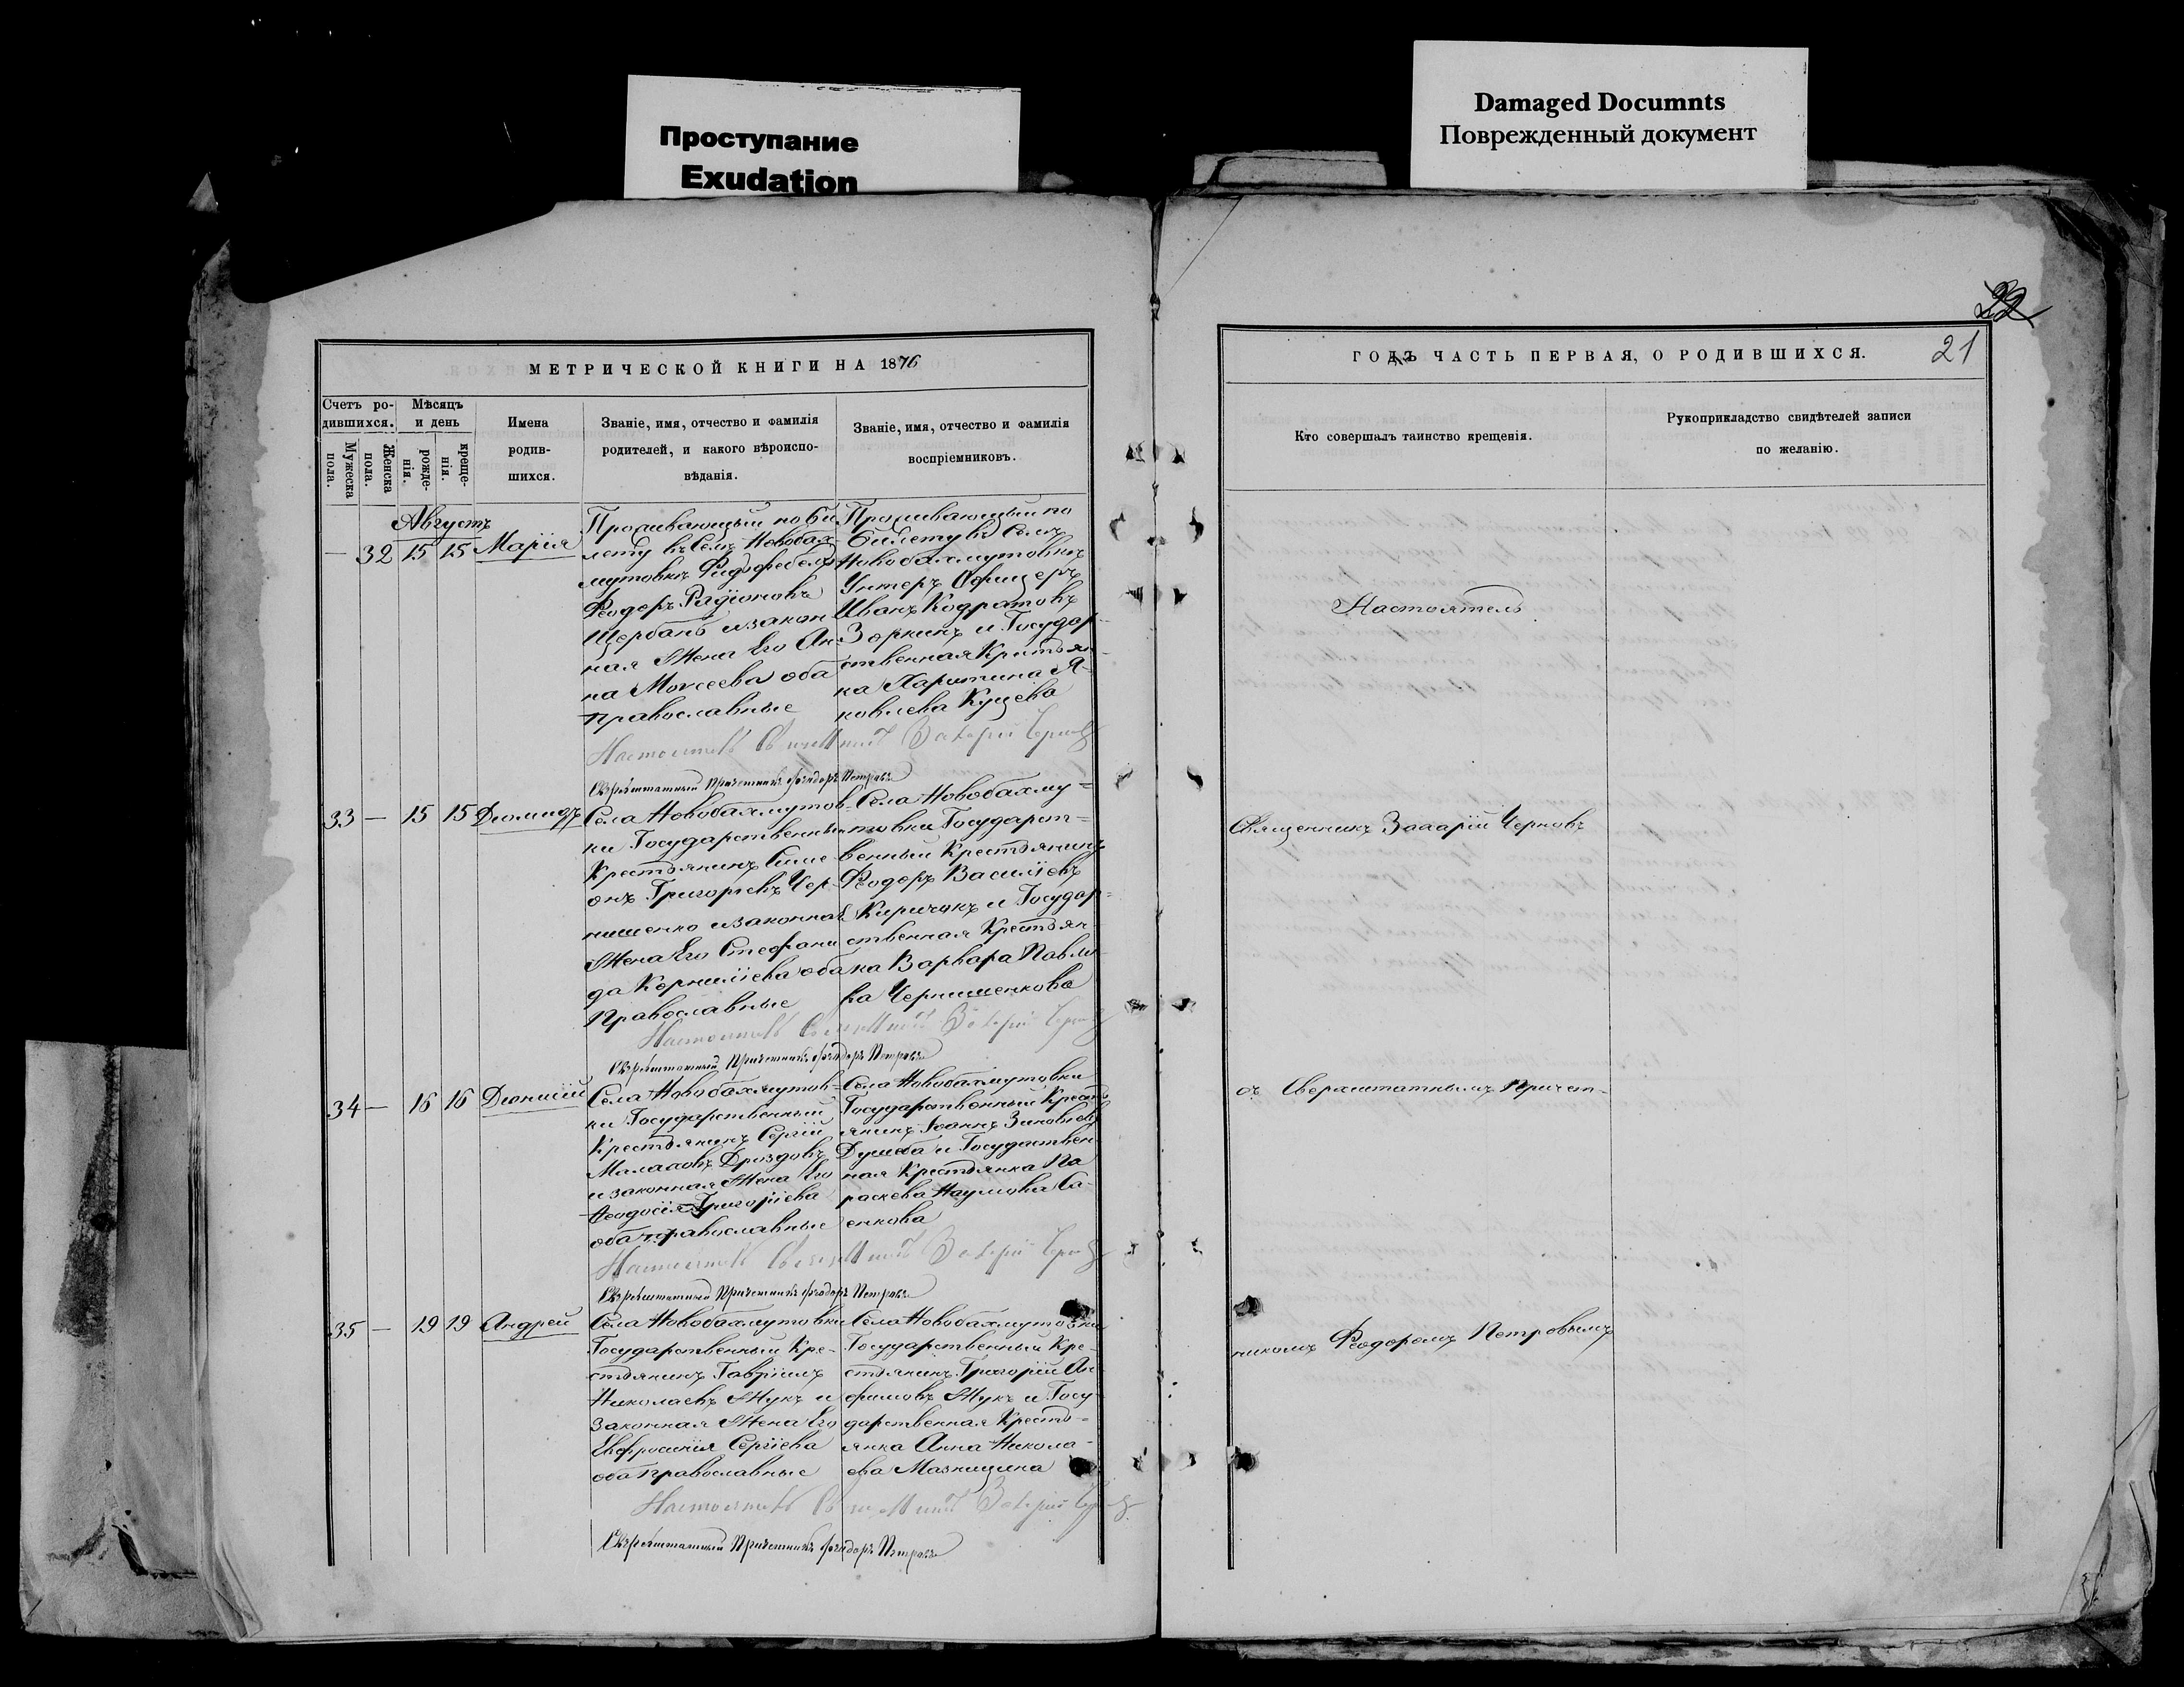 Проступание
Exudation
Damaged Documnts
Поврежденный документ
22
МЕТРИЧЕСКОЙ КНИГИ НА 1876
Счетъ ро-
дившихся.
Мужеска
пола.
Женска
пола.
Мѣсяцъ
и день
рожде-
нія.
креще-
нія.
Имена
родив-
шихся.
Званіе, имя, отчество и фамилія
родителей, и какого вѣроиспо-
вѣданія.
Званіе, имя, отчество и фамилія
воспріемниковъ.
Августъ
— 32 15 15 Марія
Проживающый по би
лету въ Селѣ Новобах
мутовкѣ Фидьфебель
Феодоръ Радіоновъ
Щербань и закон
ная Жена Его Ан
на Моисеева оба
православные
Проживающый по
билету въ Селѣ
Новобахмутовкѣ
Унтеръ Офицеръ
Иванъ Кодратовъ
Зоркинъ и Государ-
ственная Крестьян-
ка Харитина Я-
ковлева Куцева
Настоятель Священникъ Захарій Черновъ
Сверхштатный Причетникъ Феодоръ Петровъ
33 — 15 15 Диомидъ
Села Новобахмутов-
ки Государственный
Крестьянинъ Симе
онъ Григорьевъ Чер-
нишенко и законная
Жена Его Стефани
да Корниліева оба
Православные
Села Новобахму=
товки Государст=
венный Крестьянинъ
Феодоръ Василіевъ
Киричокъ и Государ=
ственная Крестьян
ка Варвара Павло
ва Чернишенкова
Настоятель Священникъ Захарій Черновъ
Сверхштатный Причетникъ Феодоръ Петровъ
34 — 16 16 Дионисій
Села Новобахмутов-
ки Государственный
Крестьянинъ Сергій
Малаховъ Дроздовъ
и законная Жена Его
Феодосія Григоріева
оба православные
Села Новобахмутовки
Государственный Крест
янинъ Іоаннъ Зиновіевъ
Душеба и Государствен
ная Крестьянка Па
раскева Наумова Са-
енкова
Настоятель Священникъ Захарій Черновъ
Сверхштатный Причетникъ Феодоръ Петровъ
35 — 19 19 Андрей
Села Новобахмутовки
Государственный Кре-
стьянинъ Гавріилъ
Николаевъ Жукъ и
Законная Жена Его
Евфросинія Сергіева
оба православные
Села Новобахмутовки
Государственный Кре-
стьянинъ Григорій Ан
фимовъ Жукъ и Госу
дарственная Кресть=
янка Анна Никола-
ева Мазницина
Настоятель Священникъ Захарій Черновъ
Сверхштатный Причетникъ Феодоръ Петровъ
ГОДЪ ЧАСТЬ ПЕРВАЯ, О РОДИВШИХСЯ.
21
Кто совершалъ таинство крещенія.
Рукоприкладство свидѣтелей записи
по желанію.
Настоятель
Священникъ Захарій Черновъ
съ Сверхштатнымъ Причет-
никомъ Феодоромъ Петровымъ